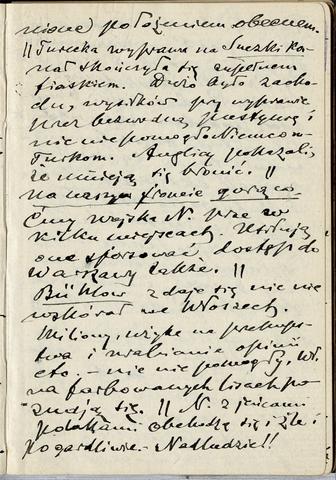 nione położeniem obecnem.
|| Turecka wyprawa na Suezki ka-
nał skończyła się zupełnem
fiaskiem. Dużo było zacho-
du, wysiłków przy wyprawie
przez bezwodną pustynię i
nic nie pomogło Niemcom-
Turkom. Anglicy pokazali,
że umieją się bronić. ||
na naszym froncie gorąco.
Ćmy wojska N. prze w
kilku miejscach. Usiłują
one sforsować dostęp do
Warszawy także. ||
Bülow zdaje się nic nie
wskórał we Włoszech.
Miliony, użyte na przekups-
twa i urabianie opinii
etc. - nic nie pomogły, Wł.
na farbowanych lisach po-
znają się. || N. z jeńcami
polakami obchodzą się źle i
pogardliwie. - Nadludzie!!